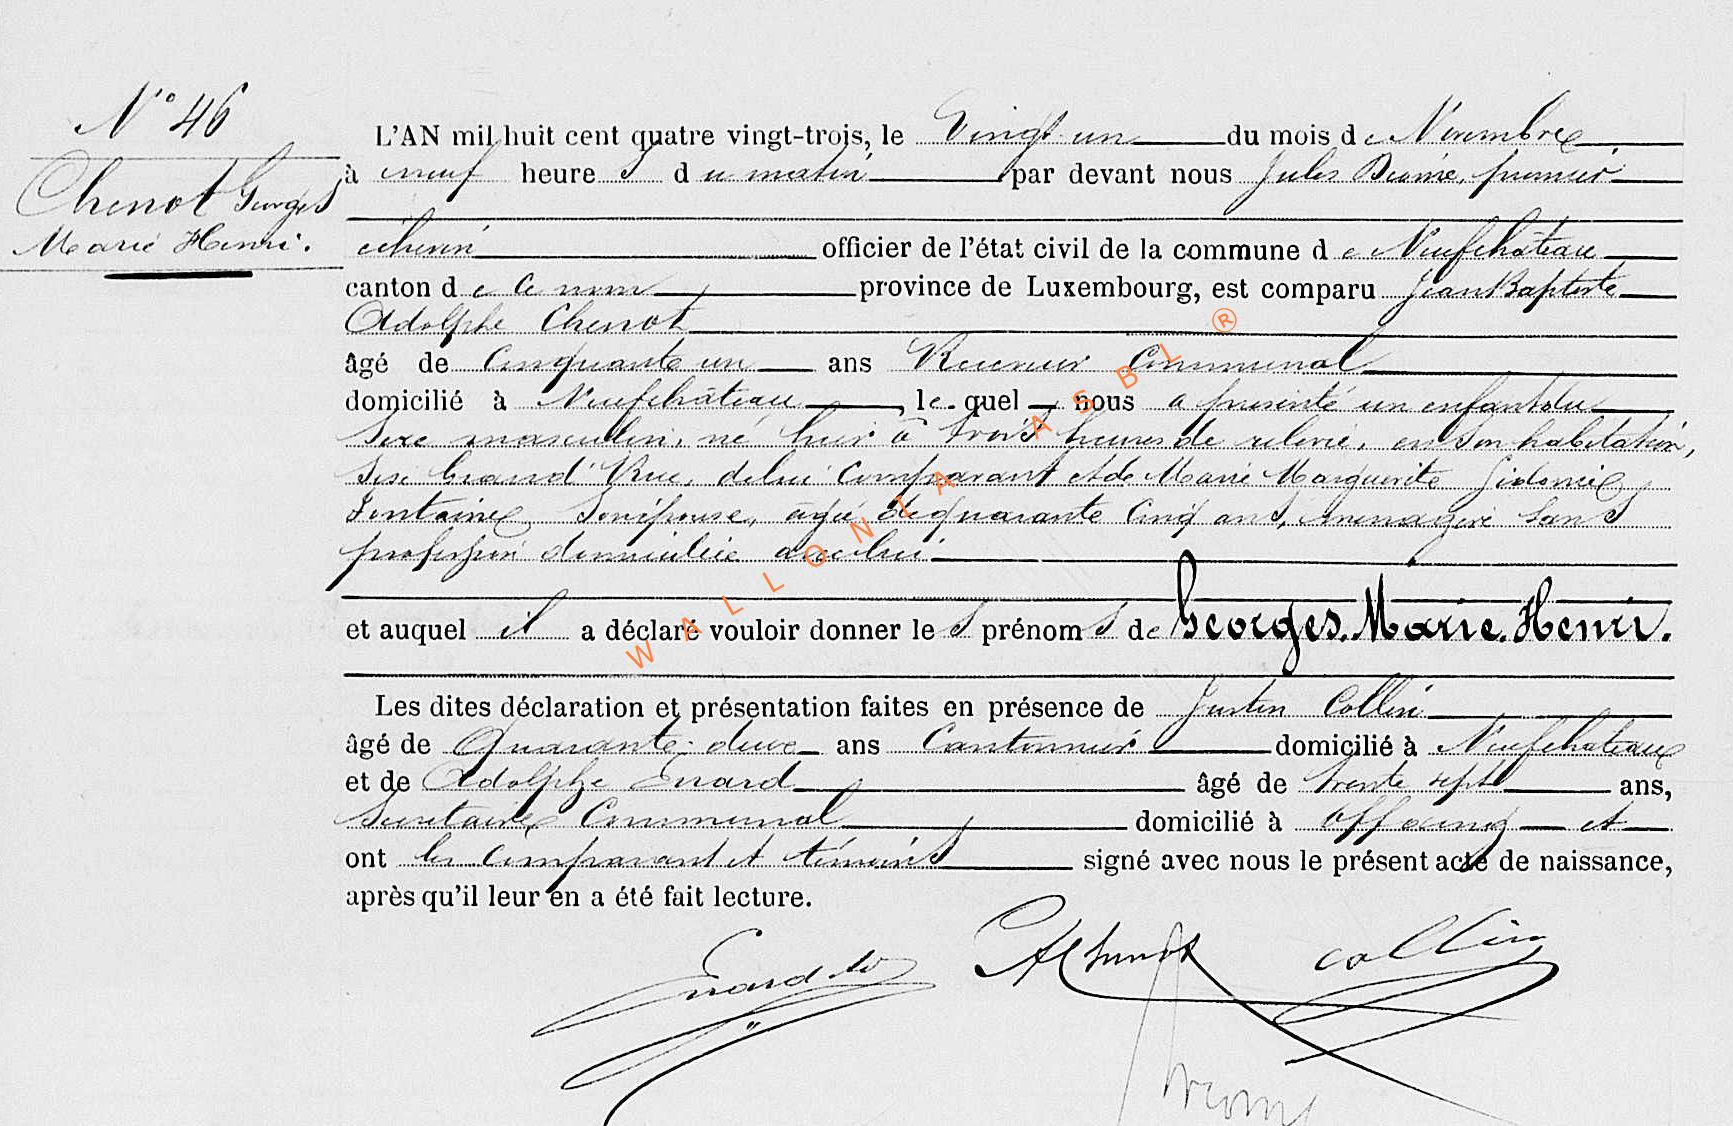 N° 46
Chenot Georges
Marie Henri.
L'AN mil huit cent quatre vingt-trois, le Vingt un du mois de Novembre
à neuf heures du matin par devant nous Jules premier
échevin officier de l'état civil de la commune de Neufchâteau
canton de ce nom province de Luxembourg, est comparu Jean Baptiste
Adolphe Chenot
âgé de Cinquante un ans Receveur Communal
domicilié à Neufchâteau, lequel nous a présenté un enfant du
Sexe masculin, né hier à trois heures de relevée, en son habitation,
sise Grand'Rue, de lui Comparant et de Marie Marguerite Sidonie
Fontaine, son épouse, âgée de quarante cinq ans, ménagère sans
profession domiciliée avec lui
et auquel il a déclaré vouloir donner les prénoms de Georges. Marie. Henri.
Les dites déclaration et présentation faites en présence de Justin Collin
âgé de Quarante-deux ans Cantonnier domicilié à Neufchateau
et de Adolphe Evrard âgé de trente sept ans,
Secrétaire Communal domicilié à Offaing et
ont les comparant et témoins signé avec nous le présent acte de naissance,
après qu'il leur en a été fait lecture.
Evrard Ad Chenot Collin
WALLONIA ASBL ®